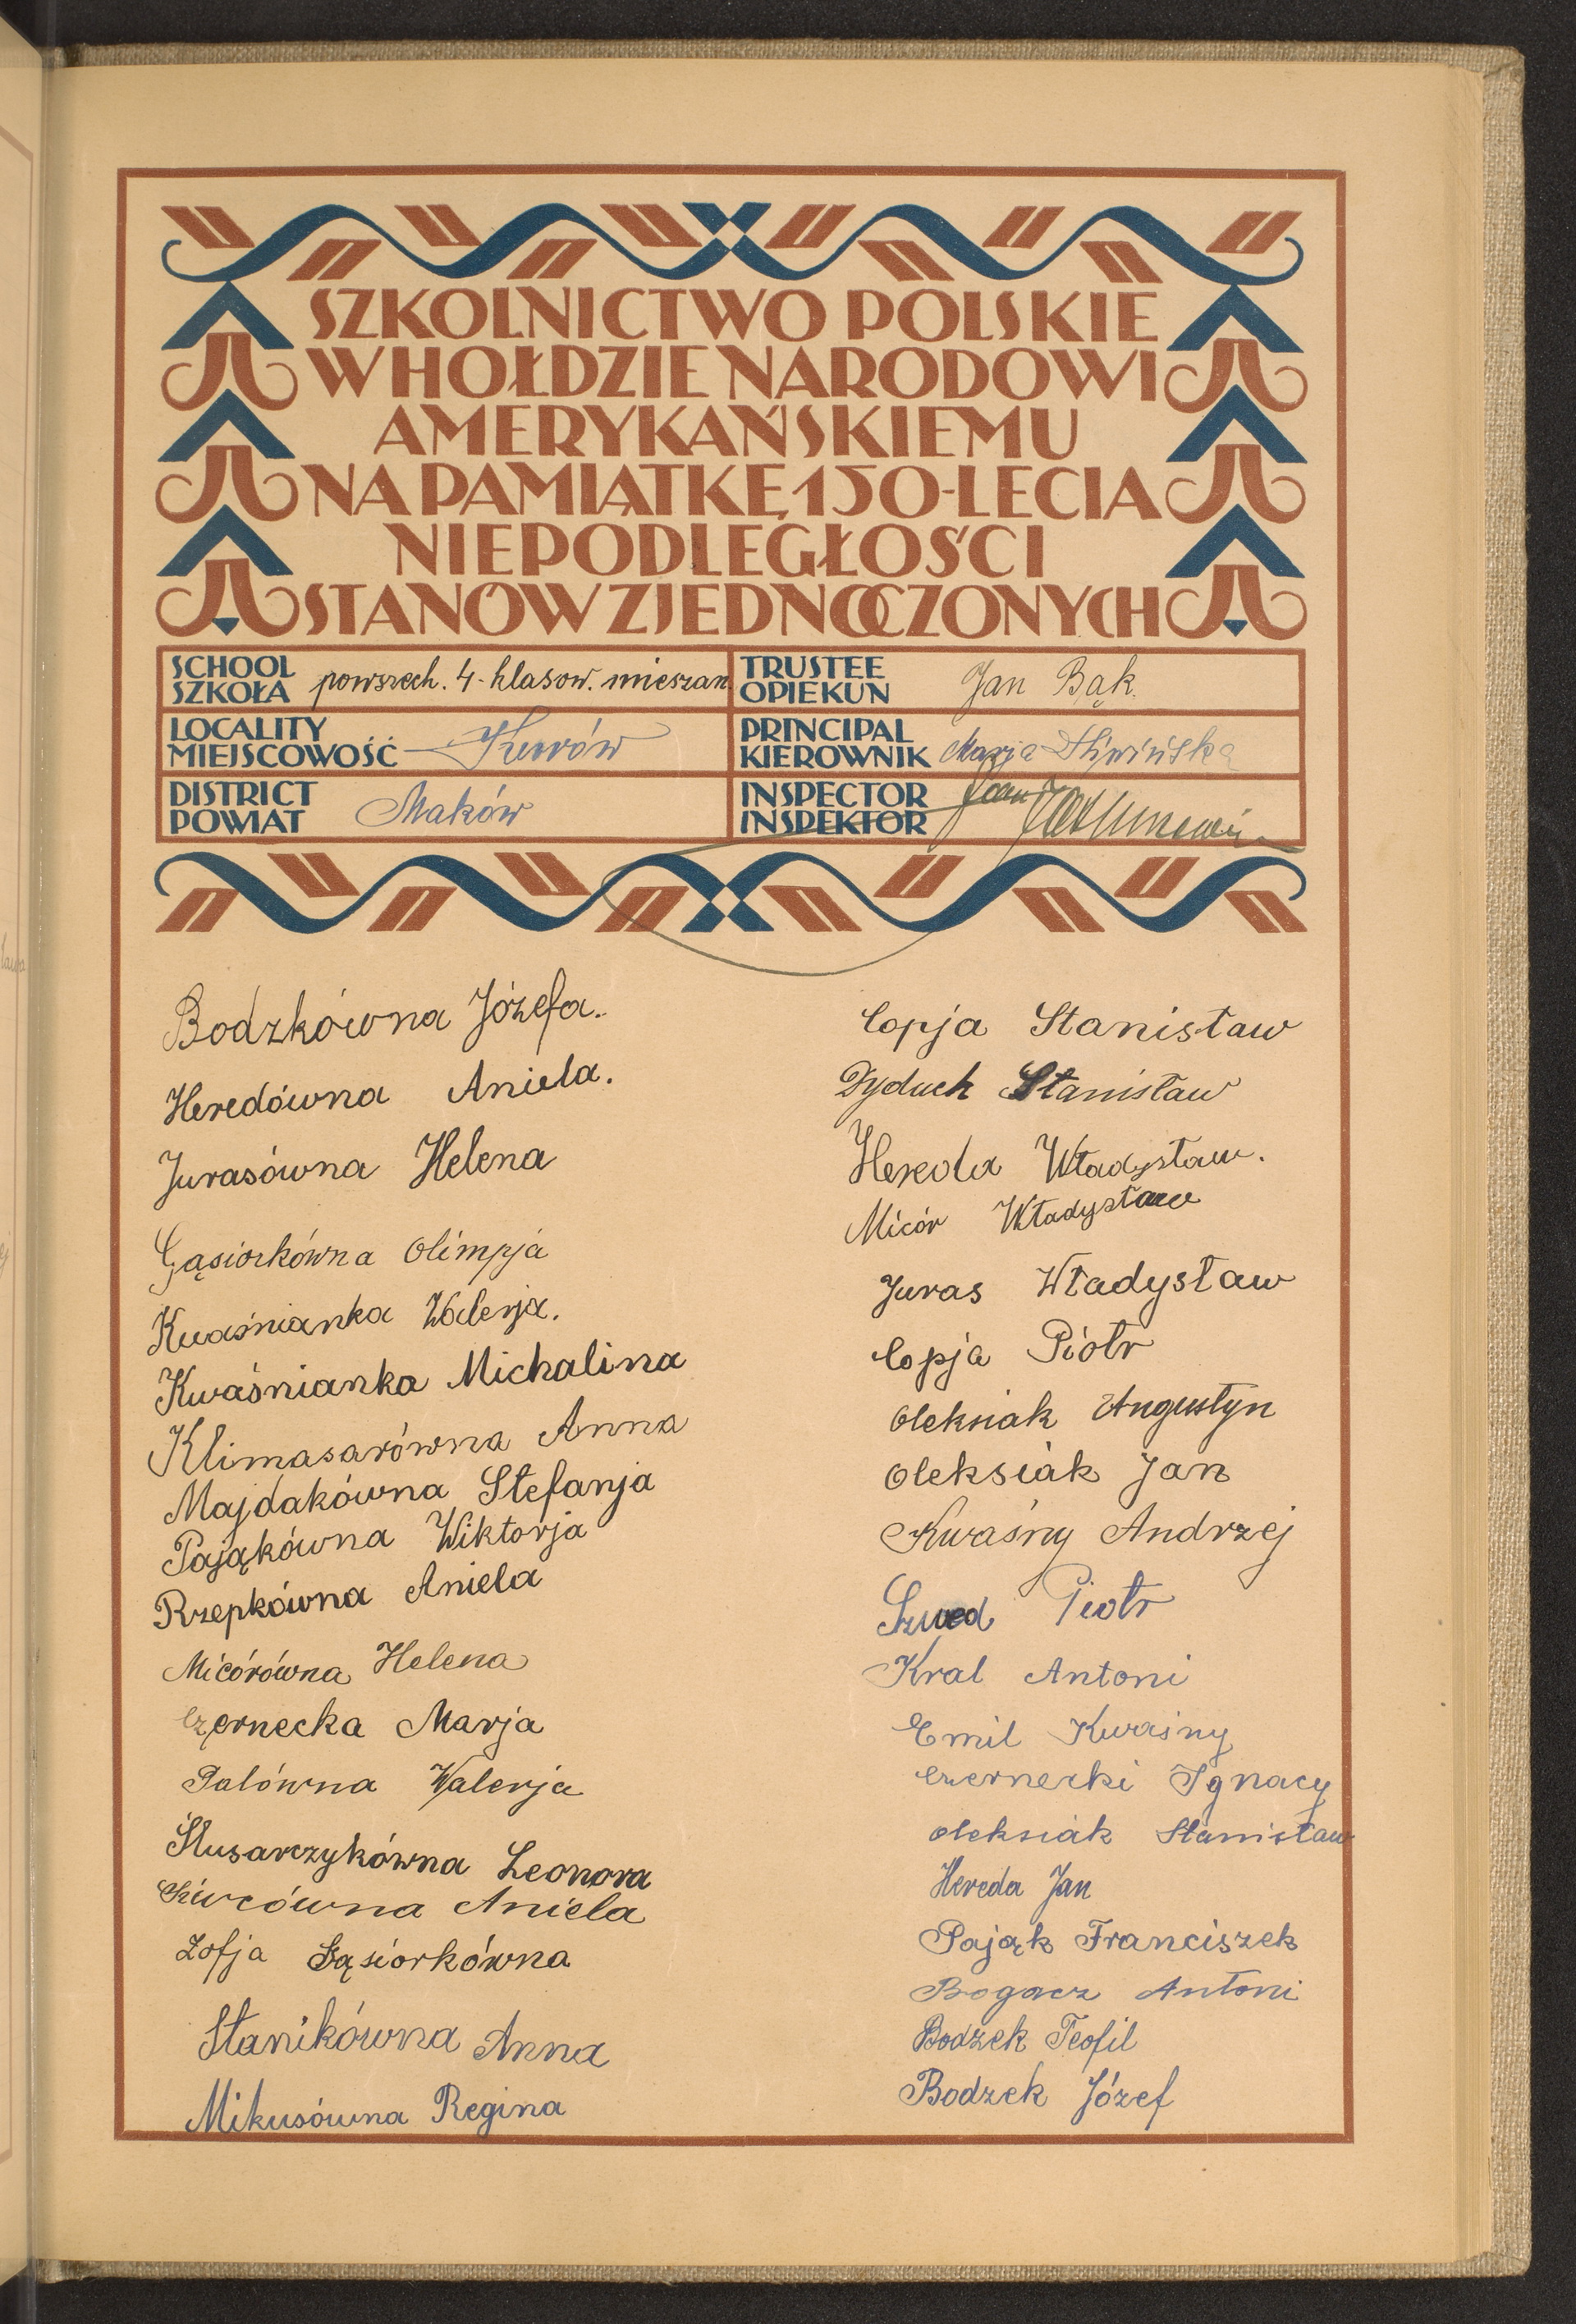 SZKOLNICTWO POLSKIE
W HOŁDZIE NARODOWI
AMERYKAŃSKIEMU
NA PAMIĄTKĘ 150-LECIA
NIEPODLEGŁOŚCI
STANÓW ZJEDNOCZONYCH
SCHOOL
SZKOŁA powszech. 4-klasow. mieszan.
TRUSTEE
OPIEKUN Jan Bąk.
LOCALITY
MIEJSCOWOŚĆ
PRINCIPAL
KIEROWNIK Marja Śliwińska
DISTRICT
POWIAT Maków
INSPECTOR
INSPEKTOR Jan
Bodzkówna Józefa.
Heredówna Aniela.
Jurasówna Helena
Gąsiorkówna Olimpja
Kwaśnianka Walerja.
Kwaśnianka Michalina
Klimasarówna Anna
Majdakówna Stefanja
Pająkówna Wiktorja
Rzepkówna Aniela
Micórówna Helena
Czernecka Marja
Palówna Walerja
Ślusarczykówna Leonora
Aniela
Zofja Gąsiorkówna
Stanikówna Anna
Mikusówna Regina
Copja Stanisław
Dyduch Stanisław
Hereda Władysław.
Micór Władysław
Juras Władysław
Copja Piotr
Oleksiak Augustyn
Oleksiak Jan
Kwaśny Andrzej
Szwed Piotr
Kral Antoni
Emil Kwaśny
Czernecki Ignacy
Oleksiak Stanisław
Hereda Jan
Pająk Franciszek
Bogacz Antoni
Bodzek Teofil
Bodzek Józef